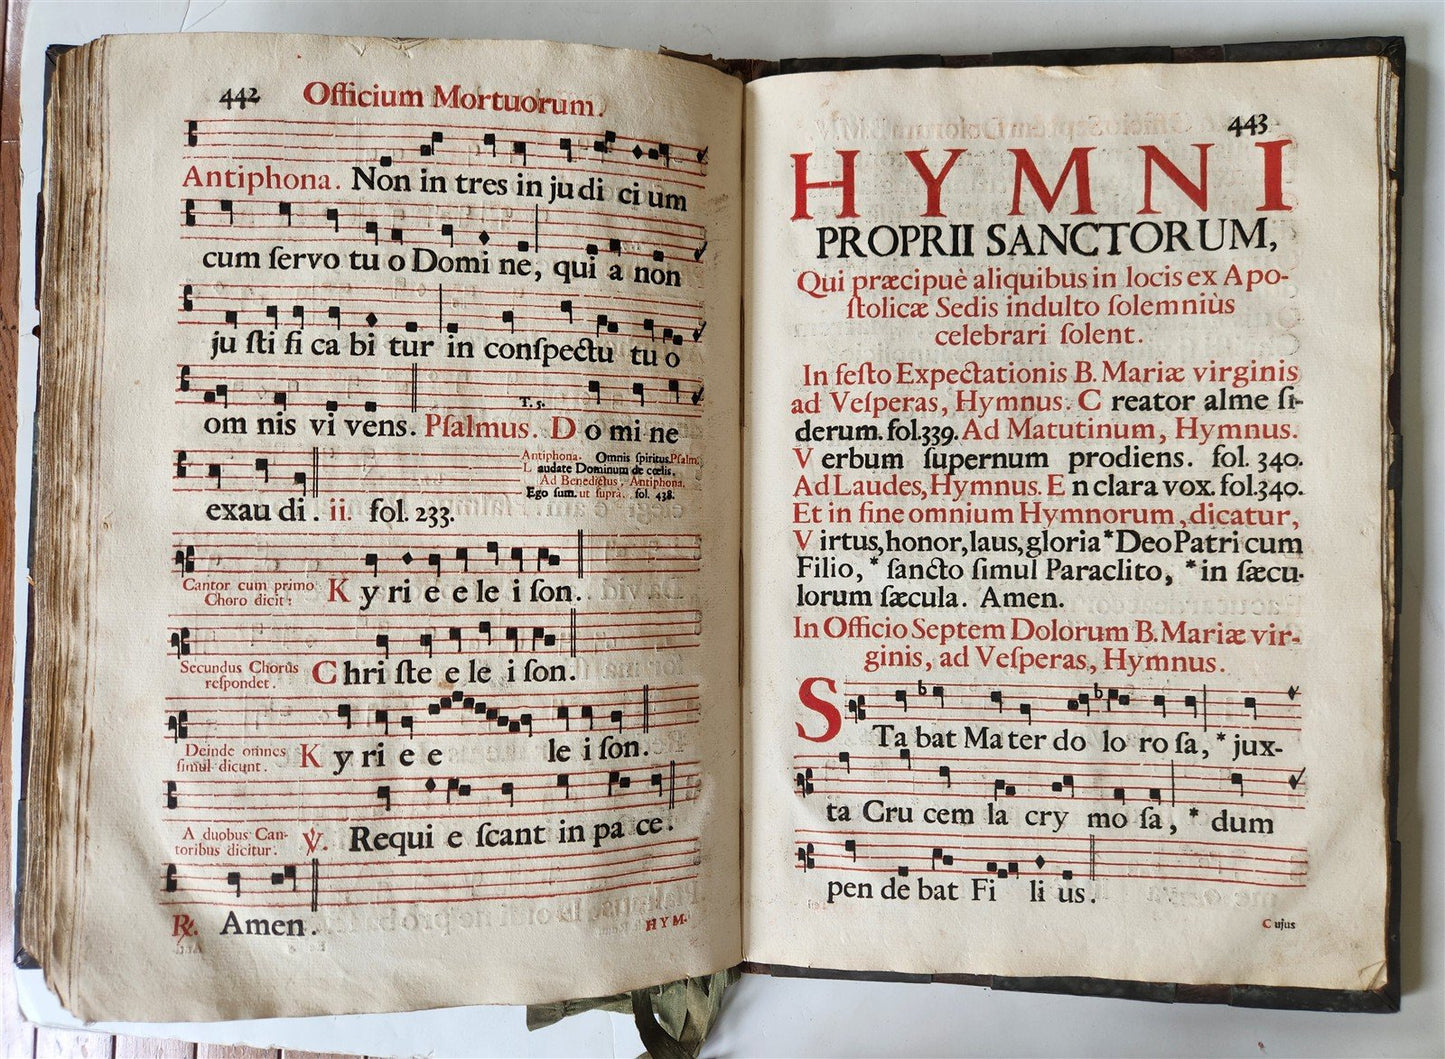 442 Officium Mortuorum.
Antiphona. Non in tres in ju di ci um
cum ſervo tu o Domi ne, qui a non
ju ſti fi ca bi tur in conſpectu tu o
T. 5.
om nis vi vens. Pſalmus. D o mi ne
Antiphona. Omnis ſpiritus. Pſalm.
L audate Dominum de cœlis.
Ad Benedictus, Antiphona.
Ego ſum. ut ſuprà. fol. 438.
exau di. ii. fol. 233.
Cantor cum primo
Choro dicit:
K y ri e e le i ſon.
Secundus Chorus
reſpondet.
C hri ſte e le i ſon.
Deinde omnes
ſimul dicunt.
K y ri e e le i ſon.
A duobus Can-
toribus dicitur.
℣. Requi e ſcant in pa ce.
℟. Amen.
HYM-
443
HYMNI
PROPRII SANCTORUM,
Qui præcipuè aliquibus in locis ex Apo-
ſtolicæ Sedis indulto ſolemniùs
celebrari ſolent.
In feſto Expectationis B. Mariæ virginis
ad Veſperas, Hymnus. C reator alme ſi-
derum. fol. 339. Ad Matutinum, Hymnus.
V erbum ſupernum prodiens. fol. 340.
Ad Laudes, Hymnus. E n clara vox. fol. 340.
Et in fine omnium Hymnorum, dicatur,
V irtus, honor, laus, gloria * Deo Patri cum
Filio, * ſancto ſimul Paraclito, * in ſæcu-
lorum ſæcula. Amen.
In Officio Septem Dolorum B. Mariæ vir-
ginis, ad Veſperas, Hymnus.
S Ta bat Ma ter do lo ro ſa, * jux-
ta Cru cem la cry mo ſa, * dum
pen de bat Fi li us.
Cujus